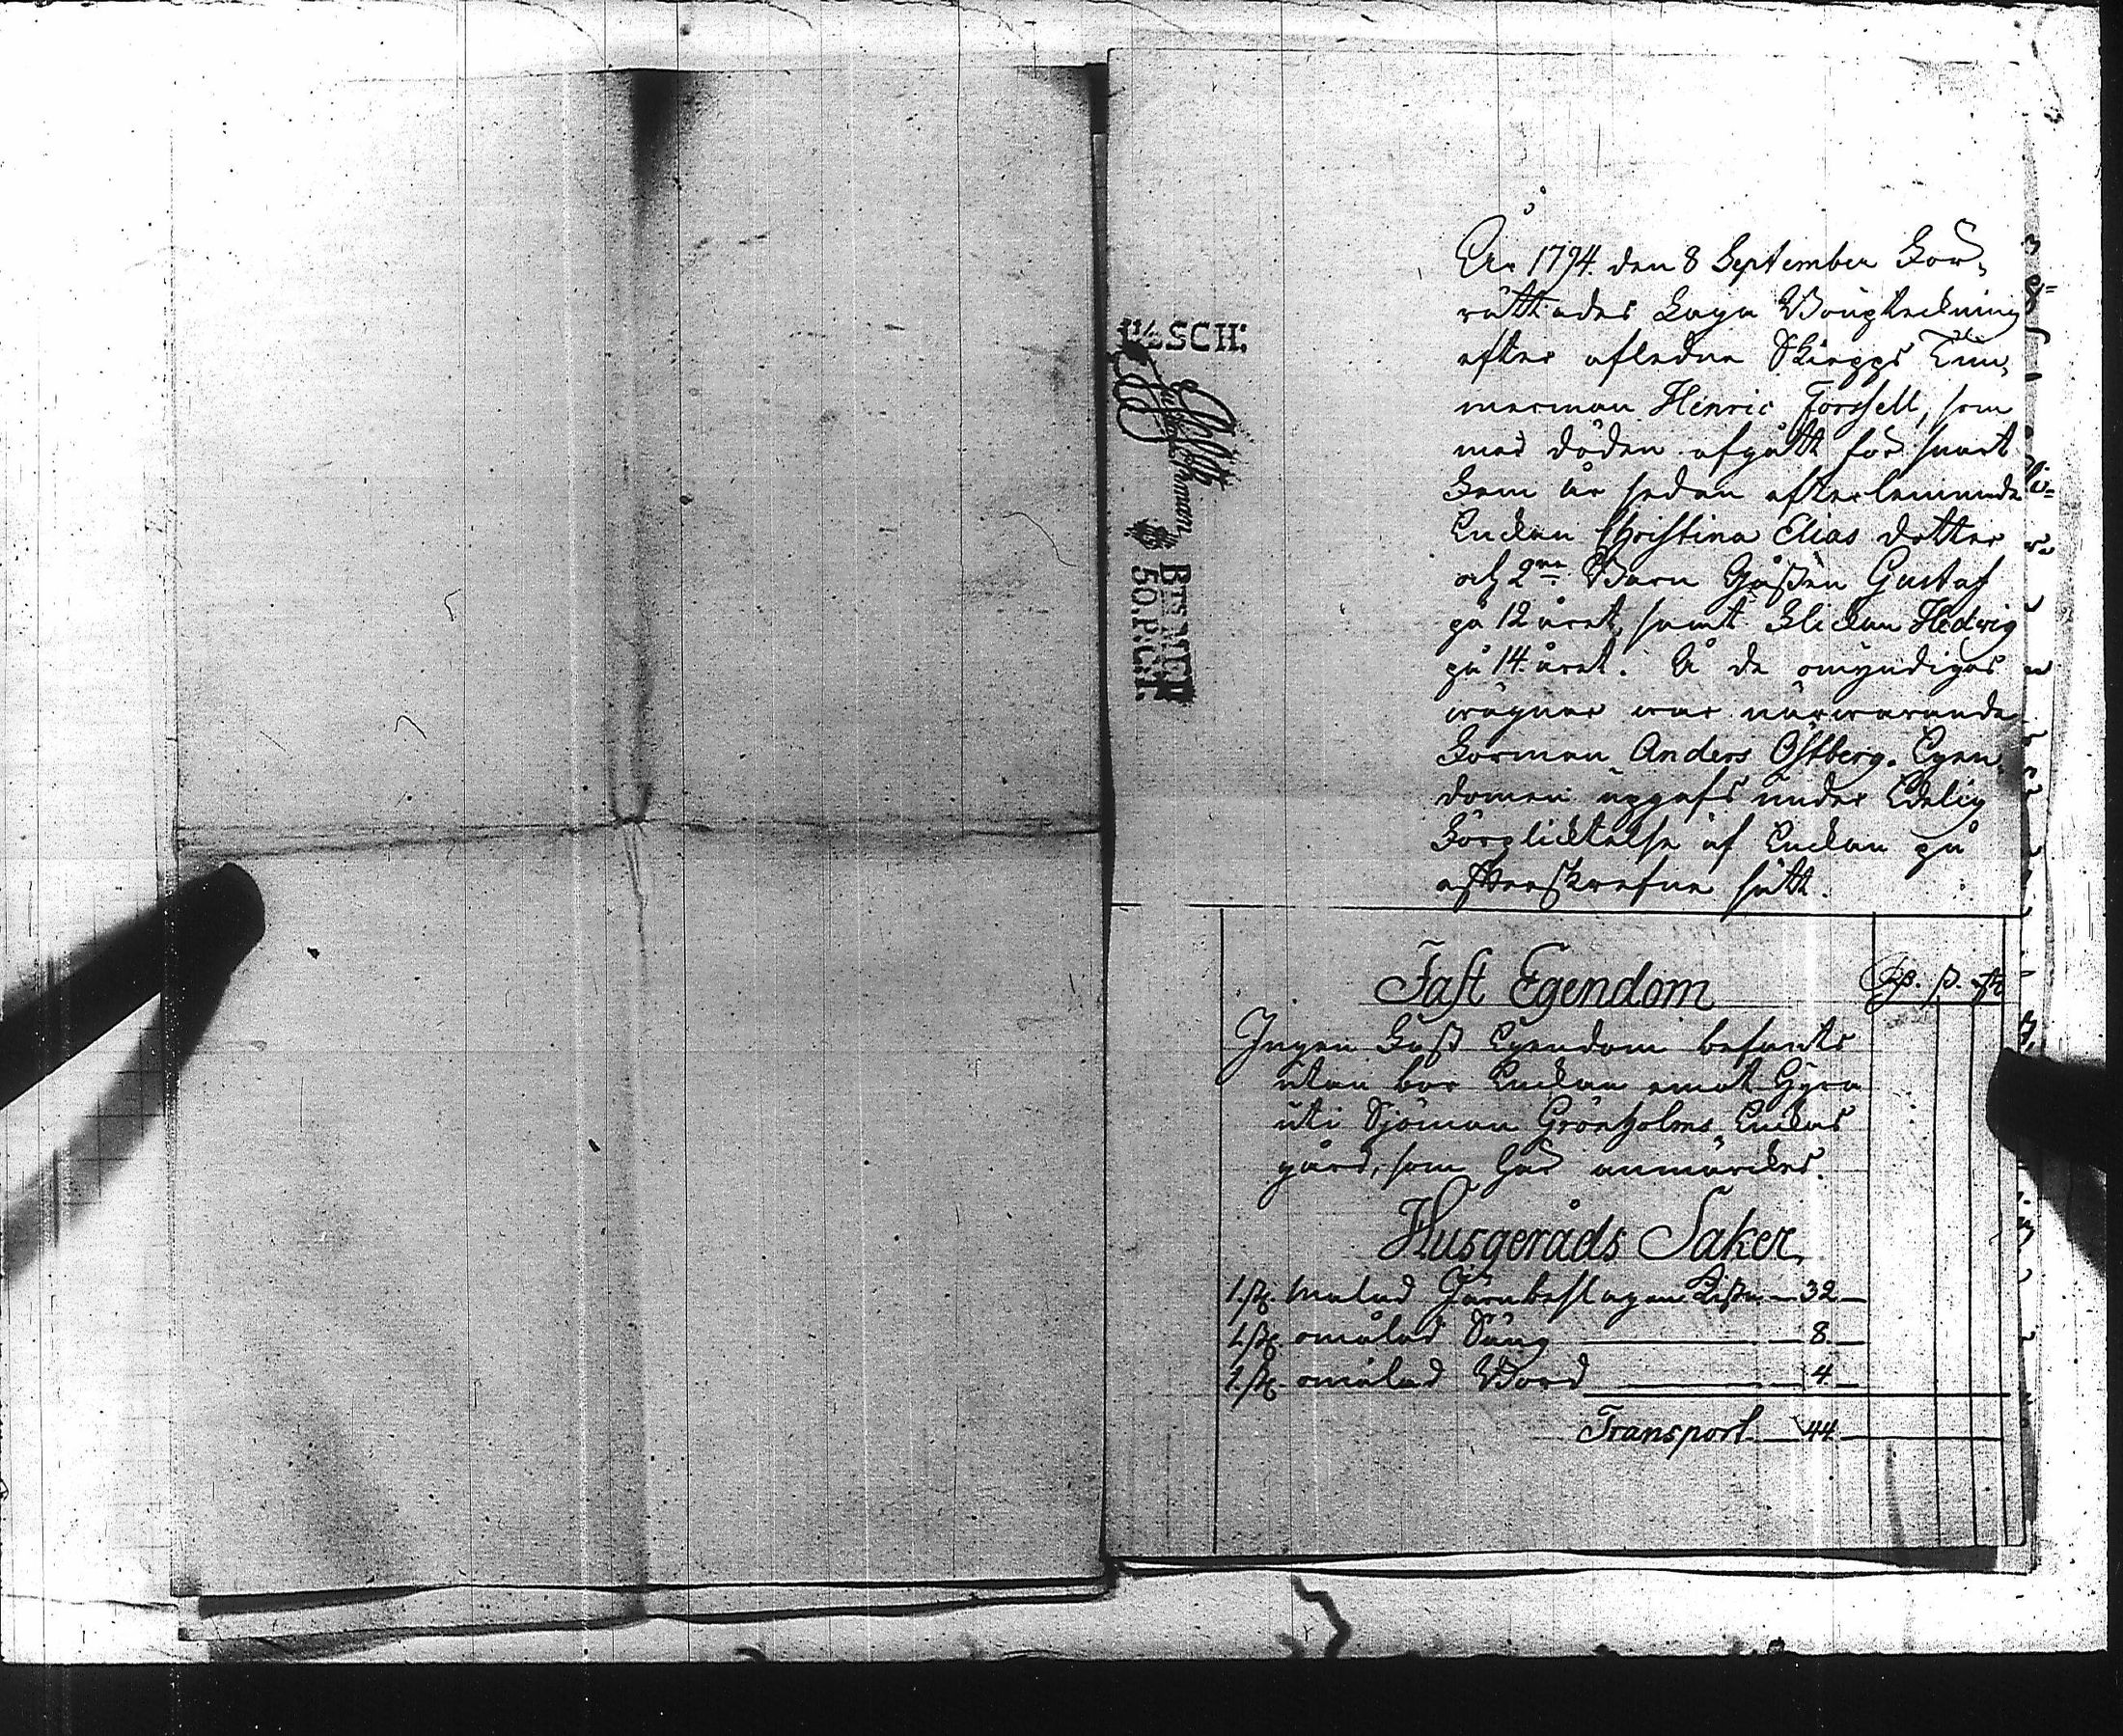 År 1794. den 8 September För-
rättades Laga Bouptekning
efter afledne Skiepps Tim-
merman Henric Forssell, som
med döden afgått för snart
Fem år sedan efterlemnande
Enckan Christina Elias dotter
och 2ne Barn Gåssen Gustaf
på 12 året, samt Flickan Hedwig
på 14. året. Å de omyndigas
wägnar war närwarande
Forman Anders Ostberg. Egen-
domen upgafs under Edelig
Förplicktelse af Enckan på
efterskrefne sätt.
Fast Egendom
Ingen Fast Egendom befants
utan bor Enckan emot Hyra
uti Sjöman Grönholms Enckas
gård, som här anmärckes.
Husgeråds Saker
1. st. malad Järnbeslagen Kista 32
1. st. omålad Säng 8
1. st. omålad Bord 4
Transport 44
SCH:
BTS MED
50. P. CT.